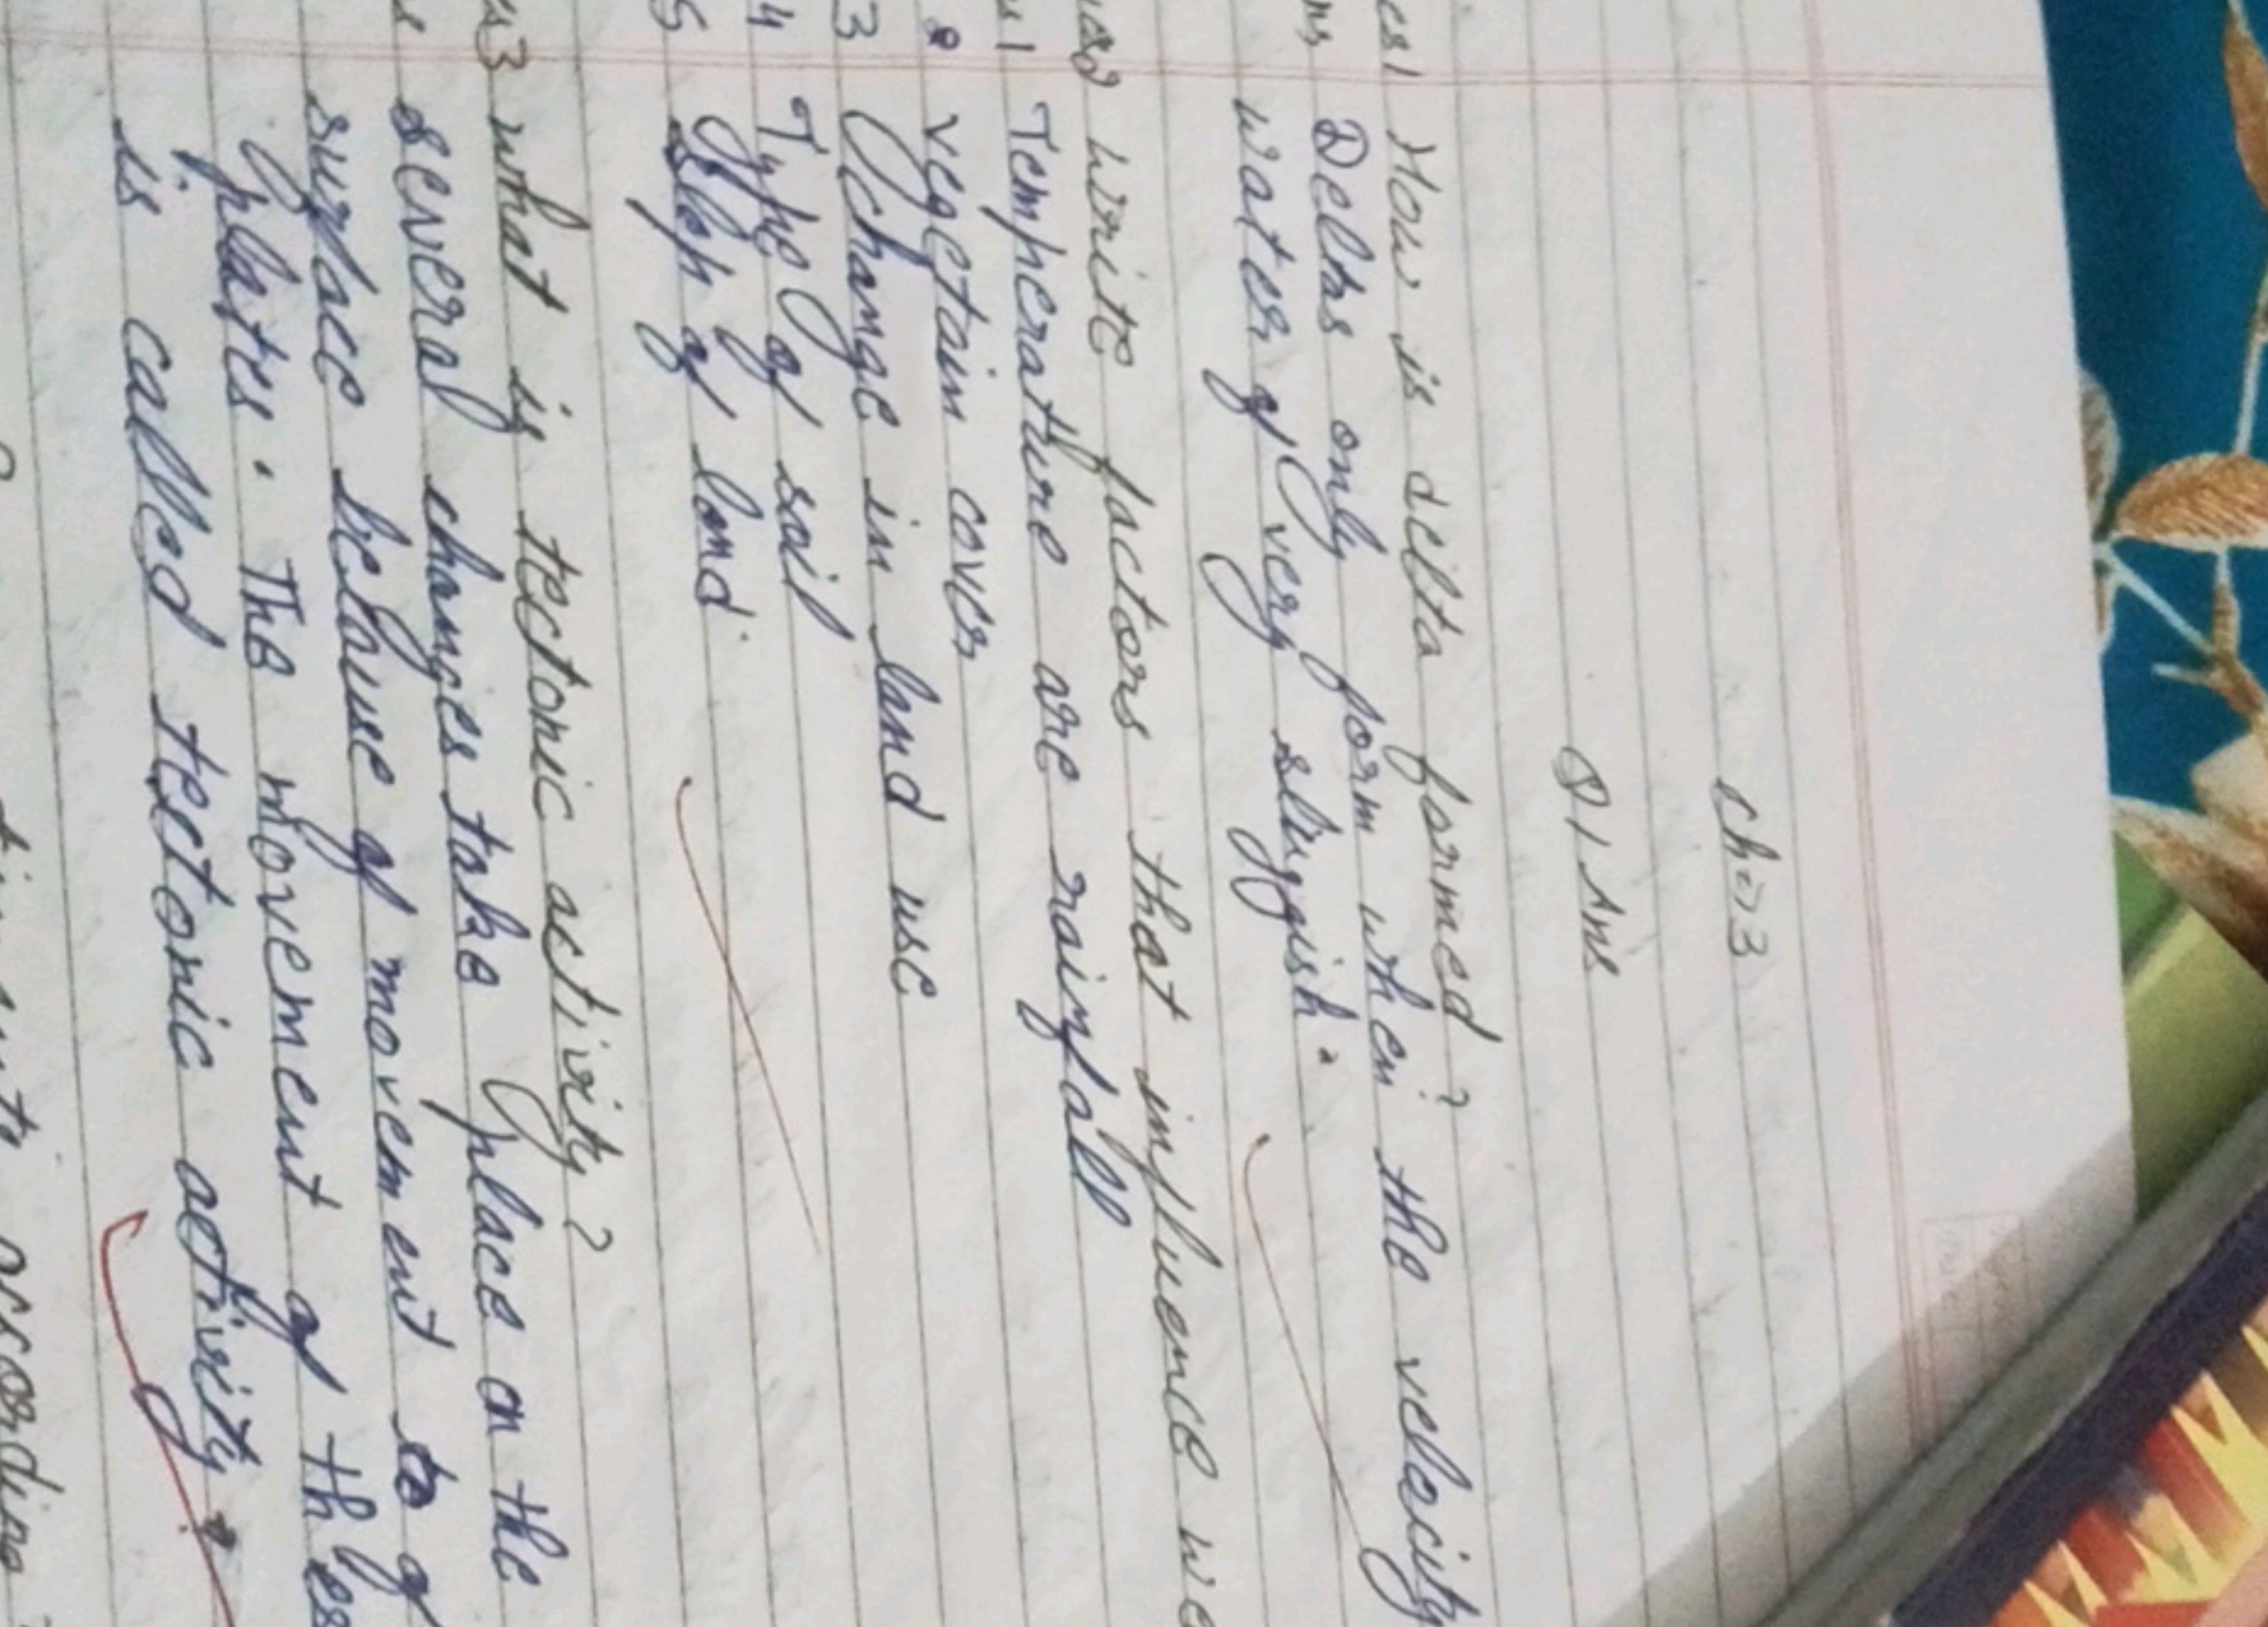 ch=>3
Q/Ans
es1 How is delta formed?
ns Deltas only form when the velocity
water of very sluggish.
ues2 write factors that influence we
s1 Temperature are rainfall
2 vegetain cover
3 change in land use
4 Type of soil
5 sloph of land.
s3 what is tectonic activity?
s several changes take place on the
surface because of movement to of
plates. The movement of thes
is called tectonic activity.
according